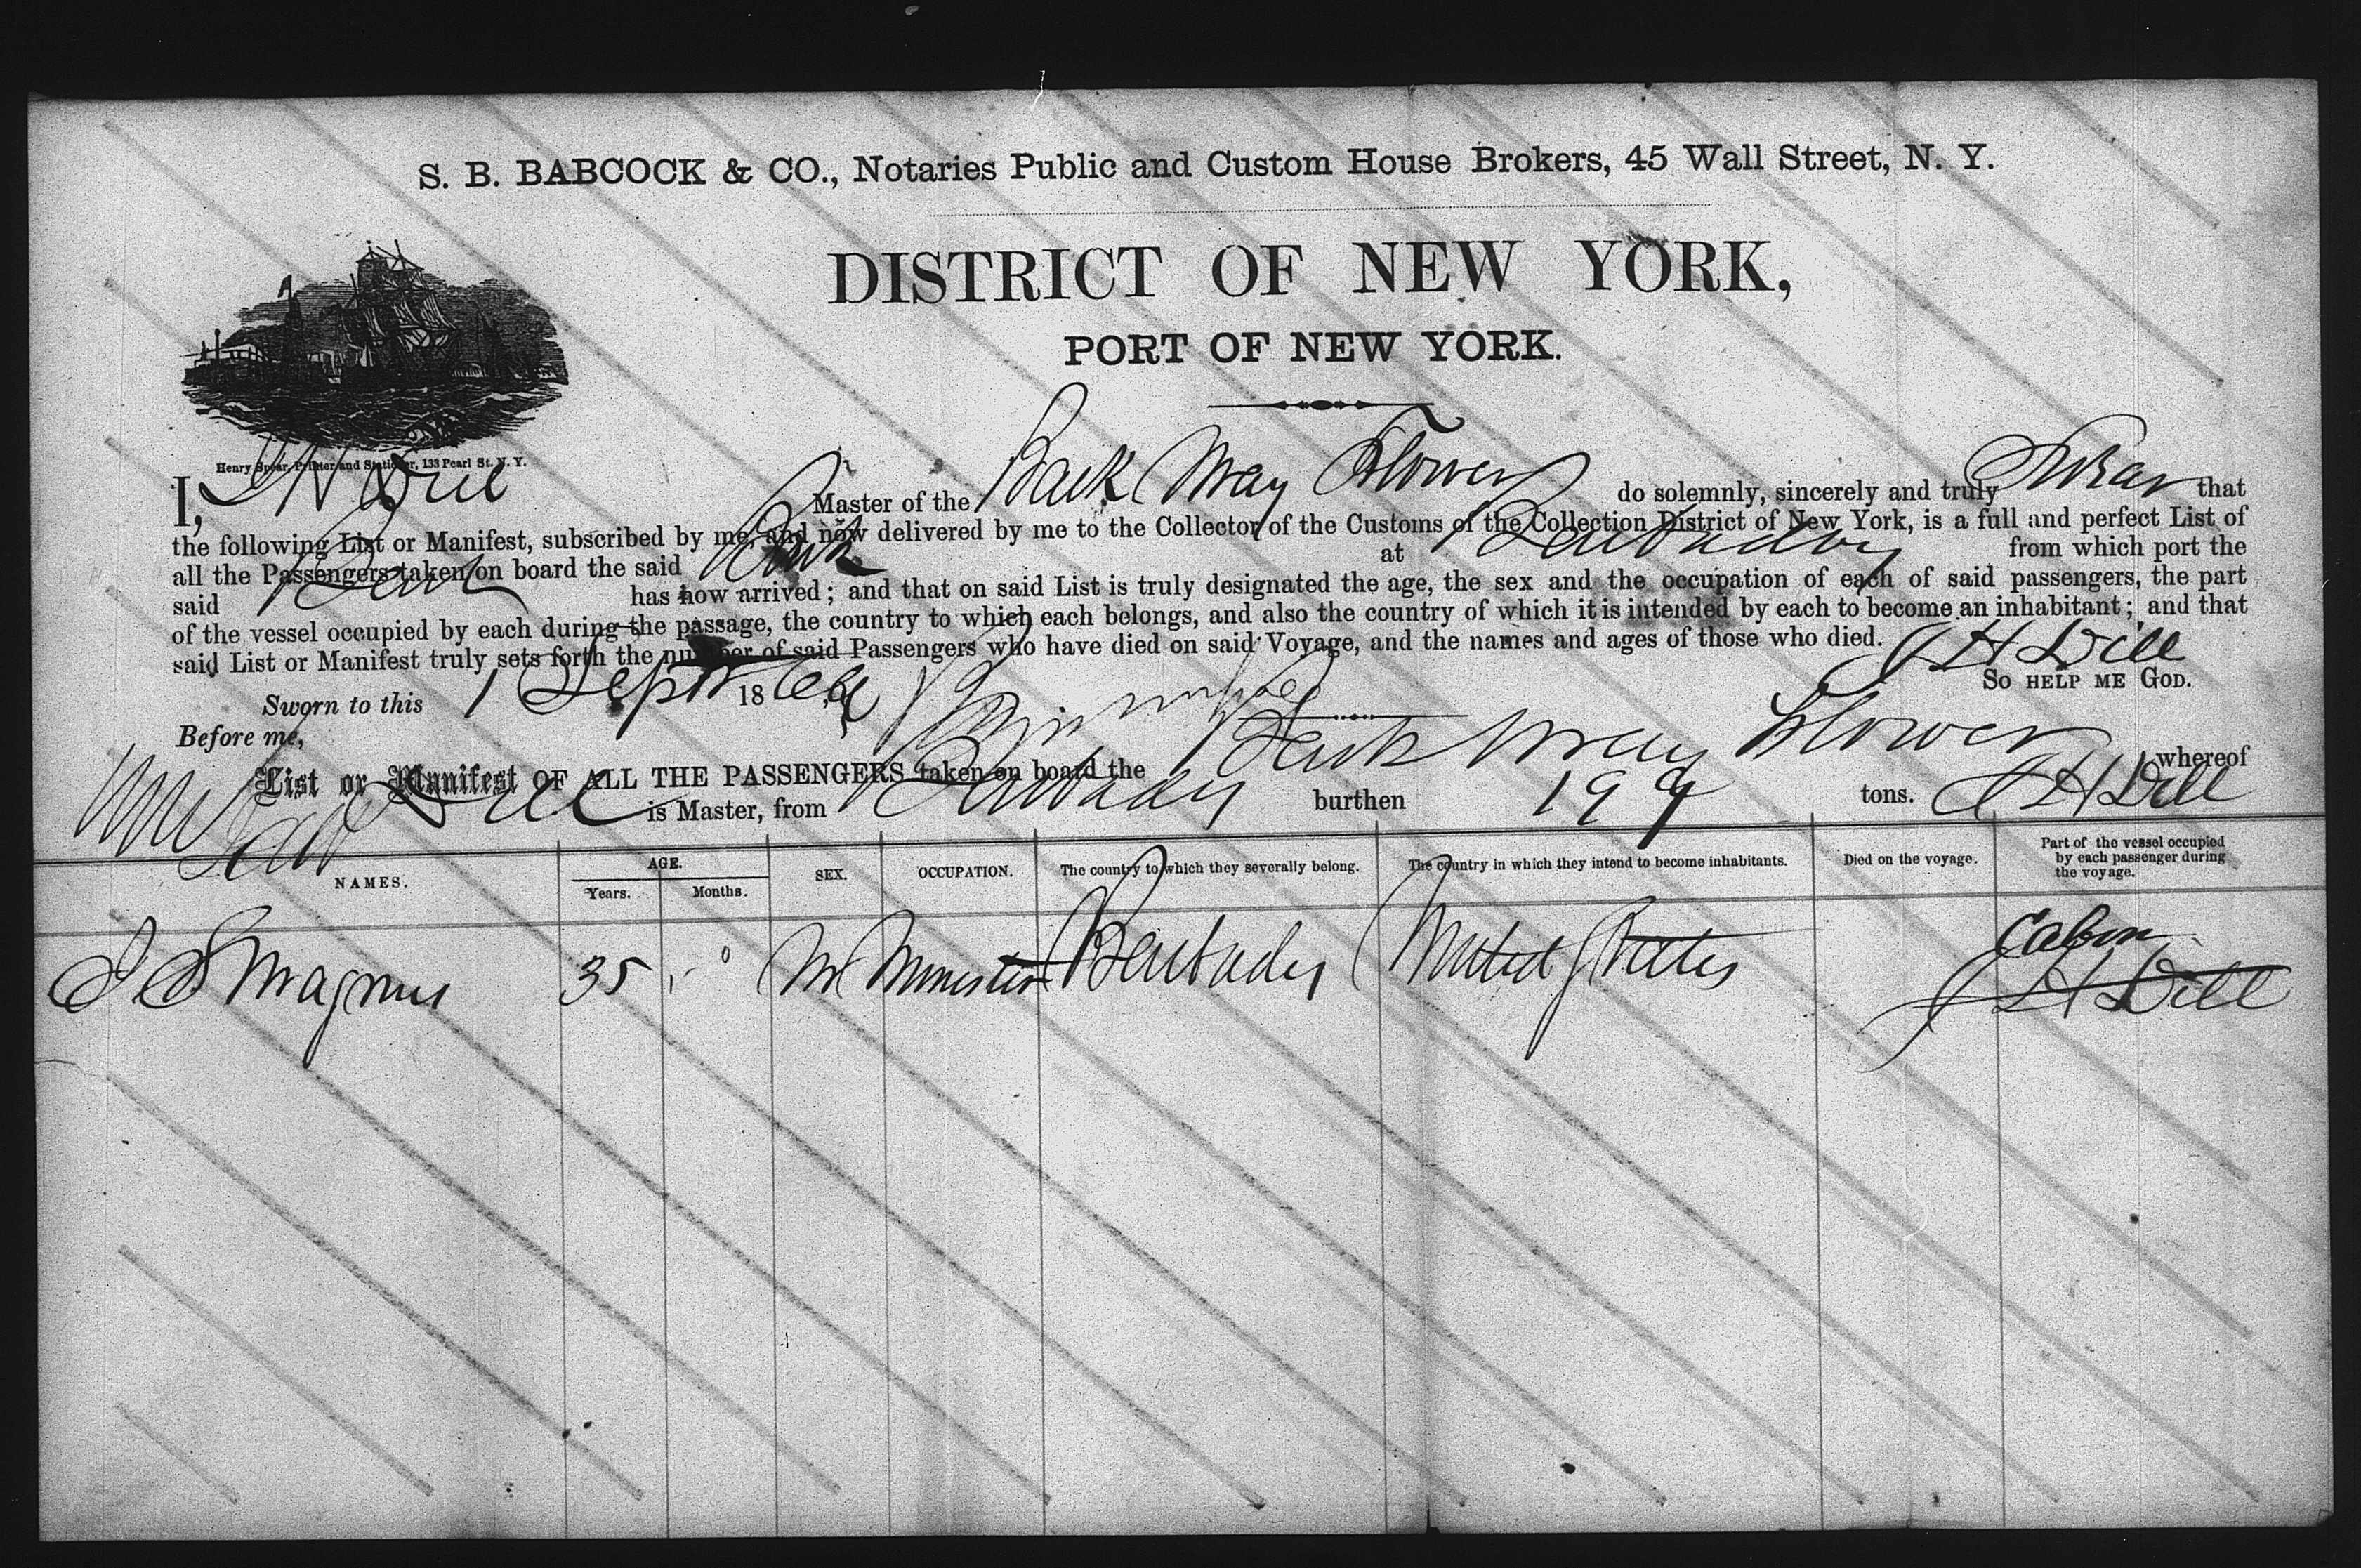 S. B. BABCOCK & CO., Notaries Public and Custom House Brokers, 45 Wall Street, N. Y.
DISTRICT OF NEW YORK,
PORT OF NEW YORK.
Henry Spear, Printer and Stationer, 133 Pearl St. N. Y.
I, J H Dill Master of the Bark May Flower do solemnly, sincerely and truly Swear that
the following List or Manifest, subscribed by me, and now delivered by me to the Collector of the Customs of the Collection District of New York, is a full and perfect List of
all the Passengers taken on board the said Bark at Barbadoes from which port the
said Bark has now arrived; and that on said List is truly designated the age, the sex and the occupation of each of said passengers, the part
of the vessel occupied by each during the passage, the country to which each belongs, and also the country of which it is intended by each to become an inhabitant; and that
said List or Manifest truly sets forth the number of said Passengers who have died on said Voyage, and the names and ages of those who died. J H Dill
So HELP ME GOD.
Sworn to this 1 Sept 1866
Before me,
List or Manifest OF ALL THE PASSENGERS taken on board the Bark May Flower whereof
Dill is Master, from Barbados burthen 199 tons. J H Dill
NAMES. AGE. Years. Months. SEX. OCCUPATION. The country to which they severally belong. The country in which they intend to become inhabitants. Died on the voyage. Part of the vessel occupied by each passenger during the voyage.
Magnus 35 0 M Minister Barbados United States Cabin
J H Dill